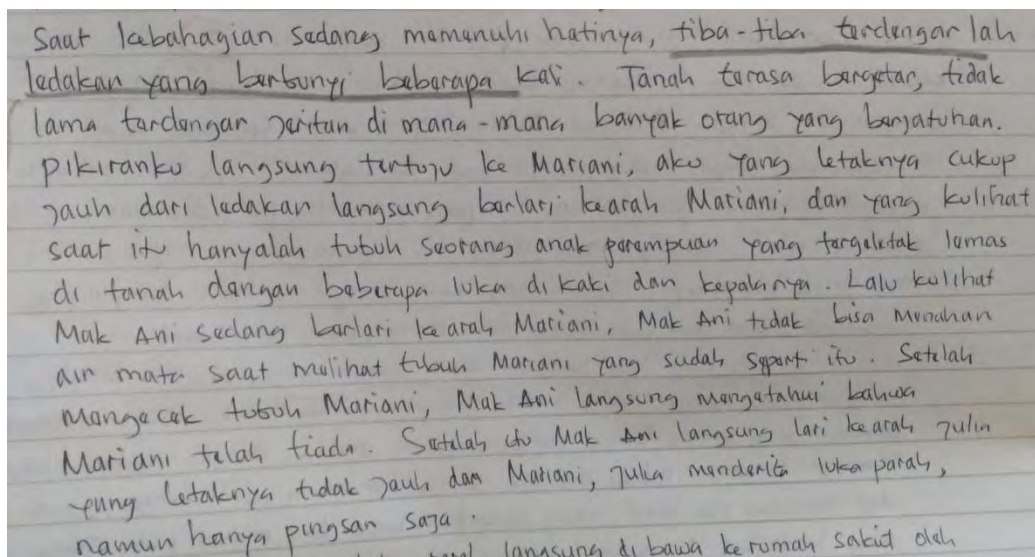 Saat kebahagian sedang memenuhi hatinya, tiba-tiba terdengar lah
ledakan yang berbunyi beberapa kali. Tanah terasa bergetar, tidak
lama terdengar jeritan di mana-mana banyak orang yang berjatuhan.
Pikiranku langsung tertuju ke Mariani, aku yang letaknya cukup
jauh dari ledakan langsung berlari kearah Mariani, dan yang kulihat
saat itu hanyalah tubuh seorang anak perempuan yang tergeletak lemas
di tanah dengan beberapa luka di kaki dan kepalanya. Lalu kulihat
Mak Ani sedang berlari ke arah Mariani, Mak Ani tidak bisa menahan
air mata saat melihat tubuh Mariani yang sudah seperti itu. Setelah
mengecek tubuh Mariani, Mak Ani langsung mengetahui bahwa
Mariani telah tiada. Setelah itu Mak Ani langsung lari ke arah Julia
yang letaknya tidak jauh dari Mariani, Julia menderita luka parah,
namun hanya pingsan saja.
langsung di bawa ke rumah sakit oleh